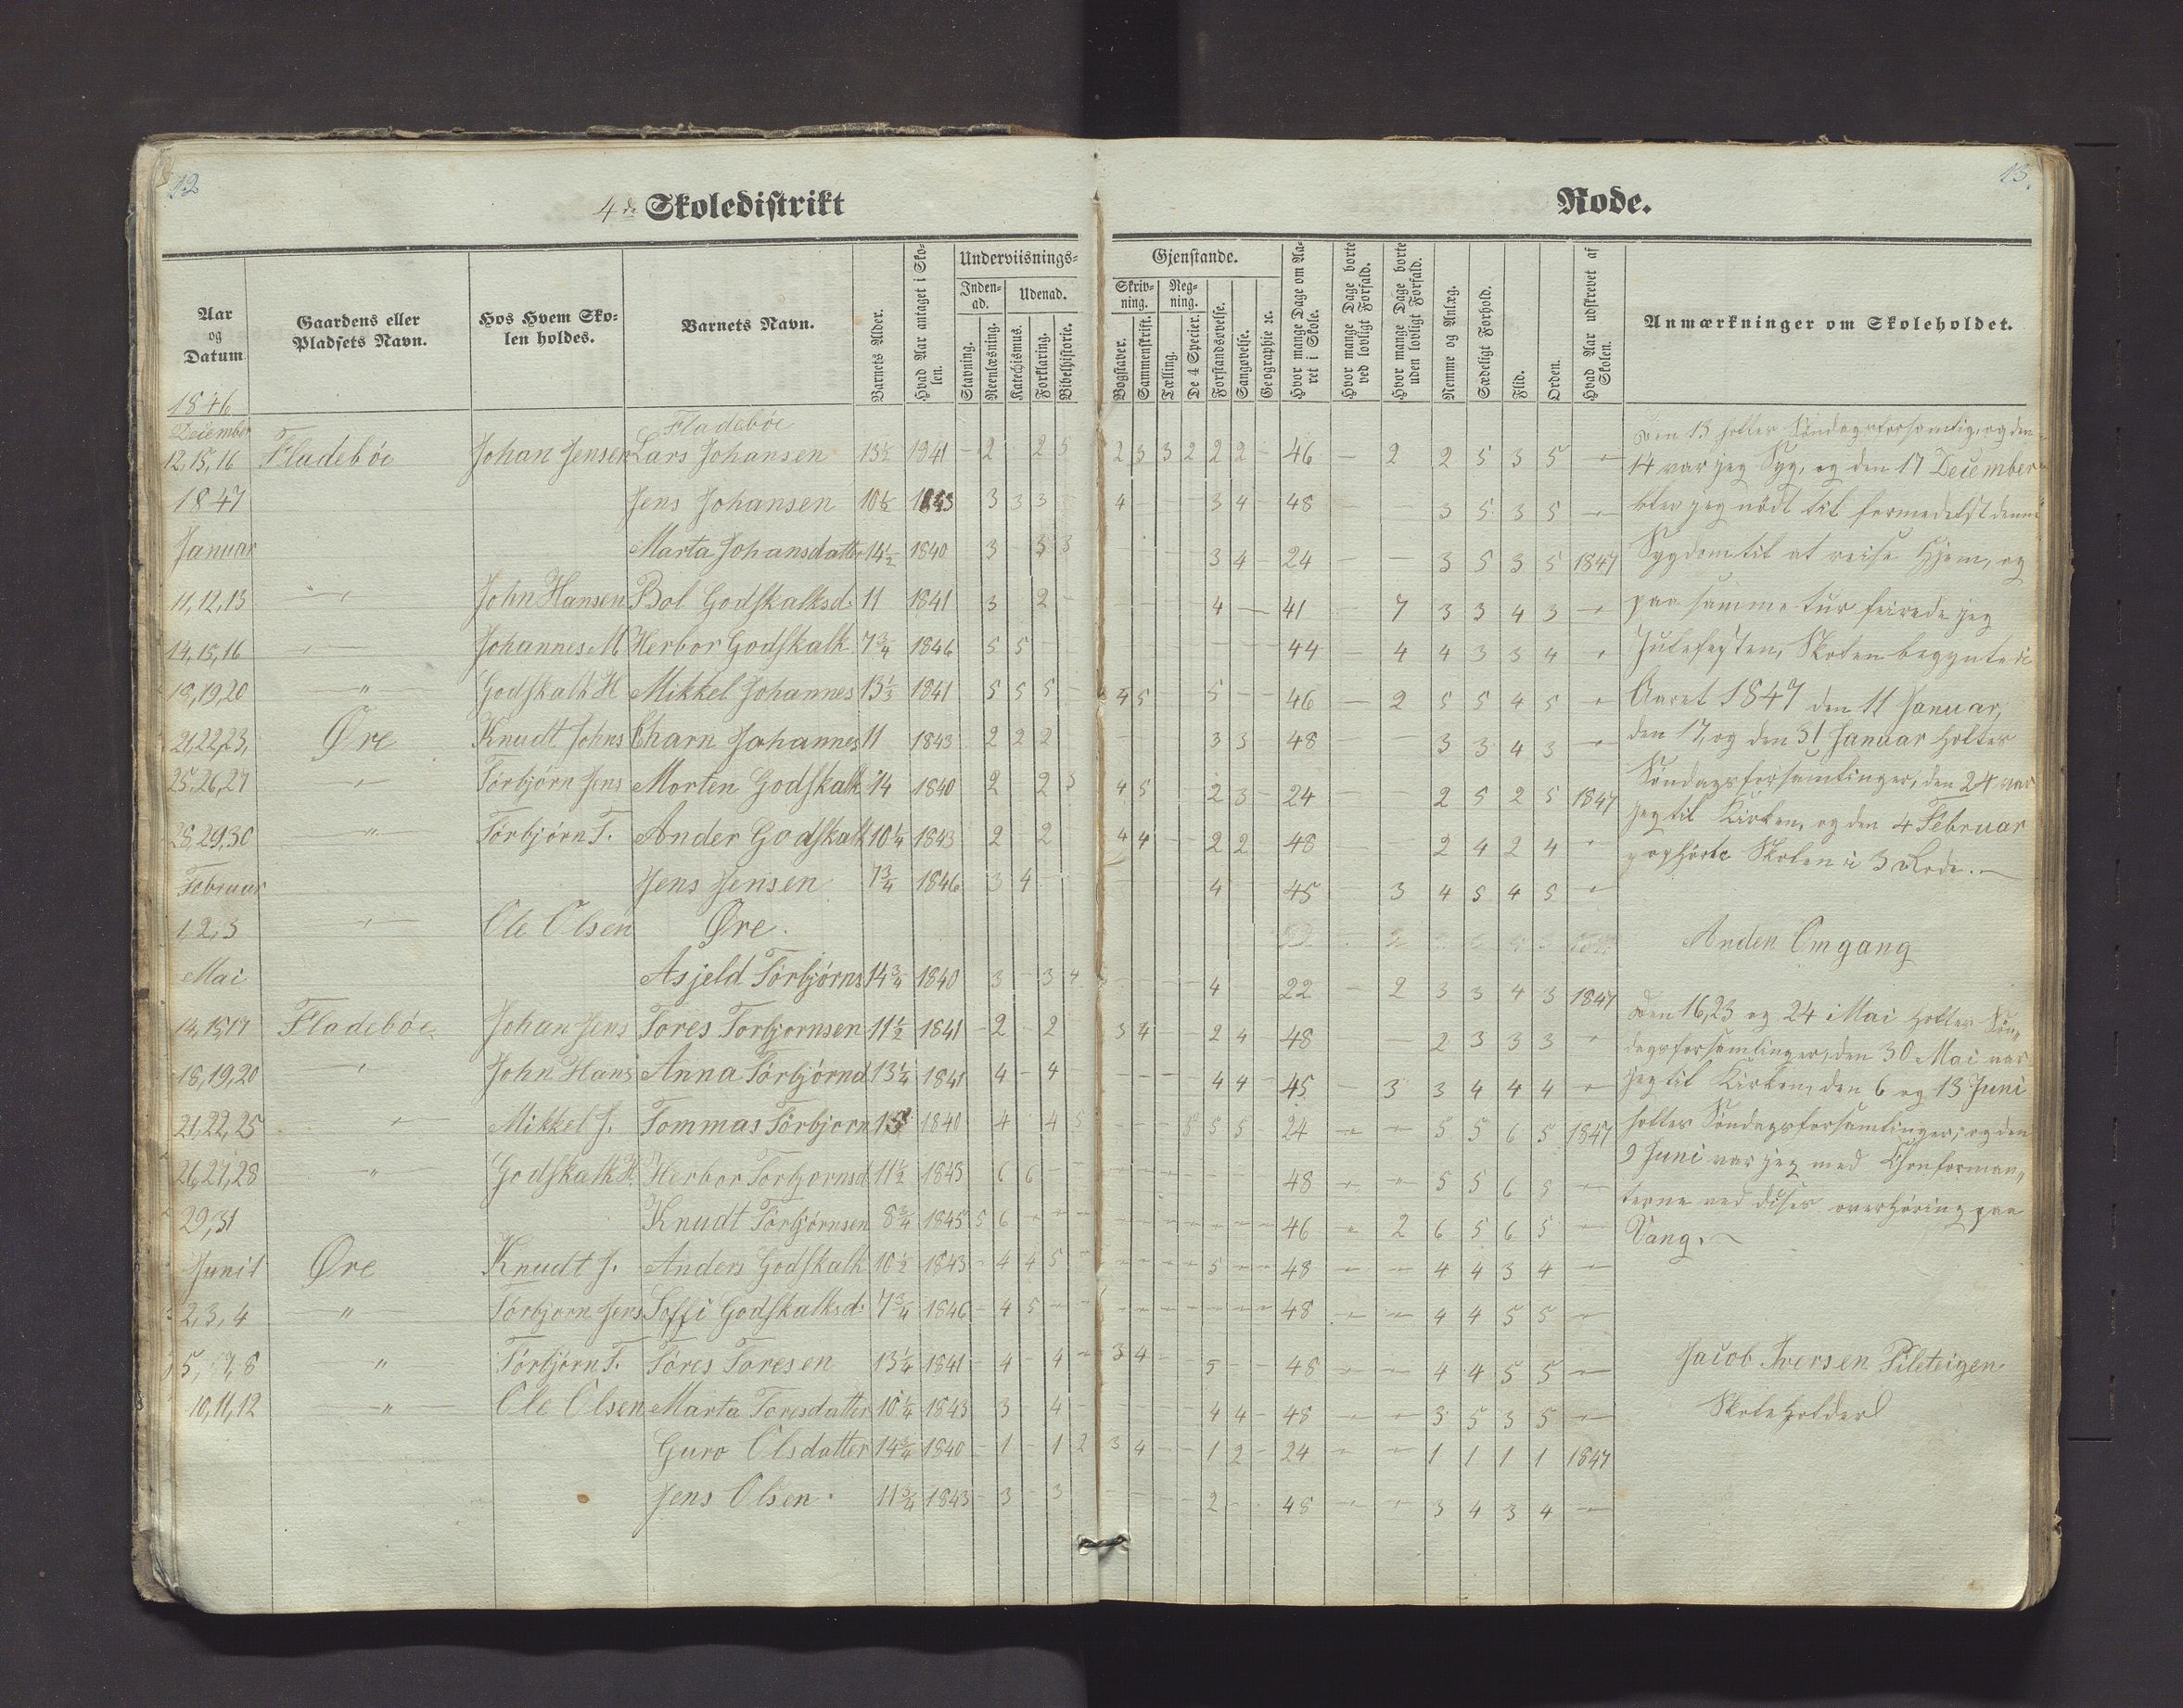 12
13.
4de Skoledistrikt
Rode.
Aar og Datum
Gaardens eller Pladsets Navn.
Hos Hvem Skolen holdes.
Barnets Navn.
Barnets Alder.
Hvad Aar antaget i Skolen.
Underviisnings=
Inden=ad.
Udenad.
Stavning.
Reenlæsning.
Katechismus.
Forklaring.
Bibelhistorie.
Gjenstande.
Skriv=ning.
Reg=ning.
Bogstaver.
Sammenskrift.
Tælling.
De 4 Specier.
Forstandsøvelse.
Sangøvelse.
Geographie ꝛc.
Hvor mange Dage om Aaret i Skole.
Hvor mange Dage borte ved lovligt Forfald.
Hvor mange Dage borte uden lovligt Forfald.
Nemme og Anlæg.
Sædeligt Forhold.
Flid.
Orden.
Hvad Aar udskrevet af Skolen.
Anmærkninger om Skoleholdet.
1846
December Fladebøe
12, 15, 16 Fladebøe Johan Jensen Lars Johansen 13½ 1941 - 2 2 5 2 3 3 2 2 2 - 46 - 2 2 5 3 5 "
1847 Jens Johansen 10½ 1843 3 3 3 4 - - - 3 4 - 48 - - 3 5 3 5 "
Januar Marta Johansdatter 14½ 1840 3 - 3 3 3 4 - 24 - - 3 5 3 5 1847
11, 12, 13 " John Hansen Bol Godskalksd: 11 1841 3 2 - 4 - 41 - 7 3 3 4 3 "
14, 15, 16 " Johannes M Herbor Godskalk 7¾ 1846 5 5 44 - 4 4 3 3 4 "
18, 19, 20 " Godskalk H Mikkel Johannes 13½ 1841 5 5 5 - 4 5 5 - - 46 - 2 5 5 4 5 "
21, 22, 23, Øre Knudt Johns Charn Johannes 11 1843 2 2 2 3 3 - 48 - - 3 3 4 3 "
25, 26, 27 " Törbjörn Jens Morten Godskalk 14 1840 2 2 3 4 5 2 3 - 24 - - 2 5 2 5 1847
28, 29, 30 " Törbjörn T. Ander Godskalk 10¼ 1843 2 2 4 4 2 2 - 48 - - 2 4 2 4 "
Februar Jens Jensen 7¾ 1846 3 4 4 45 - 3 4 5 4 5 "
1, 2, 3 " Ole Olsen Øre.
Mai Asjeld Törbjörns 14¾ 1840 3 - 3 4 4 22 - 2 3 3 4 3 1847
14, 15, 17 Fladebøe Johan Jens Tores Torbjornsen 11½ 1841 - 2 - 2 3 4 2 4 - 48 - - 2 3 3 3 "
18, 19, 20 " John Hans Anna Törbjörnd 13¼ 1841 4 - 4 4 4 - 45 - 3 3 4 4 4 "
21, 22, 25 " Mikkel J. Tommas Törbjorn 15 1840 4 4 5 5 5 5 - 24 " " 5 5 6 5 1847
26, 27, 28 " Godskalk H. Herbor Torbjornsd 11½ 1843 6 6 48 " " 5 5 6 5 "
29, 31 Knudt Törbjörnsen 8¾ 1845 5 6 46 " 2 6 5 6 5 "
Juni 1 Øre Knudt J. Anders Godskalk 10½ 1843 - 4 4 5 5 - - 48 " " 4 4 3 4 "
2, 3, 4 " Törbjorn Jens Soffi Godskalksd: 7¾ 1846 - 4 5 48 " " 4 4 5 5 "
5, 7, 8 " Törbjörn T. Töres Toresen 13¼ 1841 - 4 - 4 3 4 5 - - 48 " " 4 4 5 5 "
10, 11, 12 " Ole Olsen Marta Toresdatter 10¼ 1843 3 4 4 4 - 48 " " 3 5 3 5 "
Guro Olsdatter 14¾ 1840 - 1 - 1 2 3 4 1 2 - 24 " " 1 1 1 1 1847
Jens Olsen 11¾ 1843 - 3 - 3 2 - 48 " " 3 4 3 4 "
Den 13 holtes Söndagsforsamling, og den
14 var jeg Syg, og den 17 December
blev jeg nödt til formedelst denne
Sygdom til at reise Hjem, og
paa samme tur feirede jeg
Julefesten, Skolen begynte i
Aaret 1847 den 11 Januar,
den 17, og den 31 Januar holtes
Söndagsforsamlinger, den 24 var
jeg til Kirken, og den 4 Februar
ophörte Skolen i 3 Rode.
Anden Omgang
Den 16, 23 og 24 Mai holtes Sön„
dagsforsamlinger, den 30 Mai var
jeg til Kirken, den 6 og 13 Juni
holtes Söndagsforsamlinger; og den
9 Juni var jeg med Chonforman„
terne ved overhöring paa
Vang.
Jacob Iversen Pileteigen
Skoleholder